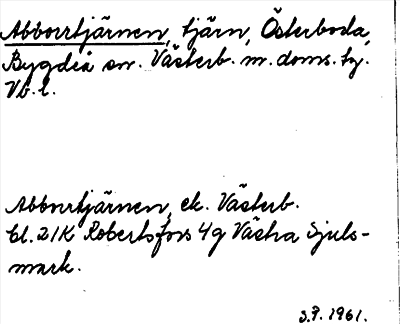 Abborrtjärnen, tjärn, Österboda,
Bygdeå sn. Västerb. m. doms. tg.
Vb. l.
Abborrtjärnen, ek. Västerb.
bl. 21K Robertsfors 4g Västra Sjuls-
mark.
S.F. 1961.